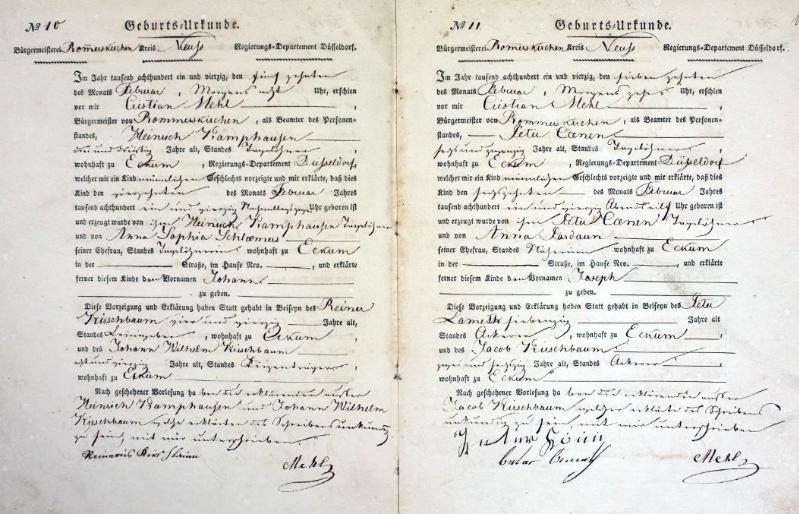 № 10 Geburts-Urkunde.
Bürgermeisterei Rommerskirchen Kreis Neuss Regierungs-Departement Düsseldorf.
Im Jahr tausend achthundert ein und vierzig, den fünfzehnten
des Monats Februar, Morgens acht Uhr, erschien
vor mir Cristian Mehl,
Bürgermeister von Rommerskirchen, als Beamter des Personen-
standes, Heinrich Kamphausen
drei und dreißig Jahre alt, Standes Tagelöhner
wohnhaft zu Eckum, Regierungs-Departement Düsseldorf
welcher mir ein Kind männlichen Geschlechts vorzeigte und mir erklärte, daß dies
Kind den vierzehnten des Monats Februar Jahres
tausend achthundert ein und vierzig Nachmittags Uhr geboren ist
und erzeugt wurde von ihm Heinrich Kamphausen Tagelöhner
und von Anna Sophia
seiner Ehefrau, Standes Tagelöhnerin wohnhaft zu Eckum
in der Straße, im Hause Nro. , und erklärte
ferner diesem Kinde den Vornamen Johann
zu geben.
Diese Vorzeigung und Erklärung haben Statt gehabt in Beiseyn des Reiner
Kirschbaum vier und vierzig Jahre alt,
Standes , wohnhaft zu Eckum
und des Johann Wilhelm Kirschbaum
acht und vierzig Jahre alt, Standes
wohnhaft zu Eckum
Nach geschehener Vorlesung haben die erklärenden außer
Heinrich Kamphausen und Johann Wilhelm
Kirschbaum welche erklärten des Schreibens unkundig
zu sein, mit mir unterschrieben.
Mehl
№ 11 Geburts-Urkunde.
Bürgermeisterei Rommerskirchen Kreis Neuss Regierungs-Departement Düsseldorf.
Im Jahr tausend achthundert ein und vierzig, den siebenzehnten
des Monats Februar, Morgens zehn Uhr, erschien
vor mir Cristian Mehl,
Bürgermeister von Rommerskirchen, als Beamter des Personen-
standes, Peter Coenen
sechs und zwanzig Jahre alt, Standes Tagelöhner
wohnhaft zu Eckum, Regierungs-Departement Düsseldorf
welcher mir ein Kind männlichen Geschlechts vorzeigte und mir erklärte, daß dies
Kind den sechszehnten des Monats Februar Jahres
tausend achthundert ein und vierzig Abends elf Uhr geboren ist
und erzeugt wurde von ihm Peter Coenen Tagelöhner
und von Anna
seiner Ehefrau, Standes Näherin wohnhaft zu Eckum
in der Straße, im Hause Nro. , und erklärte
ferner diesem Kinde den Vornamen Joseph
zu geben.
Diese Vorzeigung und Erklärung haben Statt gehabt in Beiseyn des Peter
siebenzig Jahre alt
Standes Ackerer, wohnhaft zu Eckum
und des Jacob Kirschbaum
zwei und sechzig Jahre alt, Standes Ackerer
wohnhaft zu Eckum
Nach geschehener Vorlesung haben die erklärenden außer
Jacob Kirschbaum welcher erklärte des Schreibens
unkundig zu sein mit mir unterschrieben
Mehl